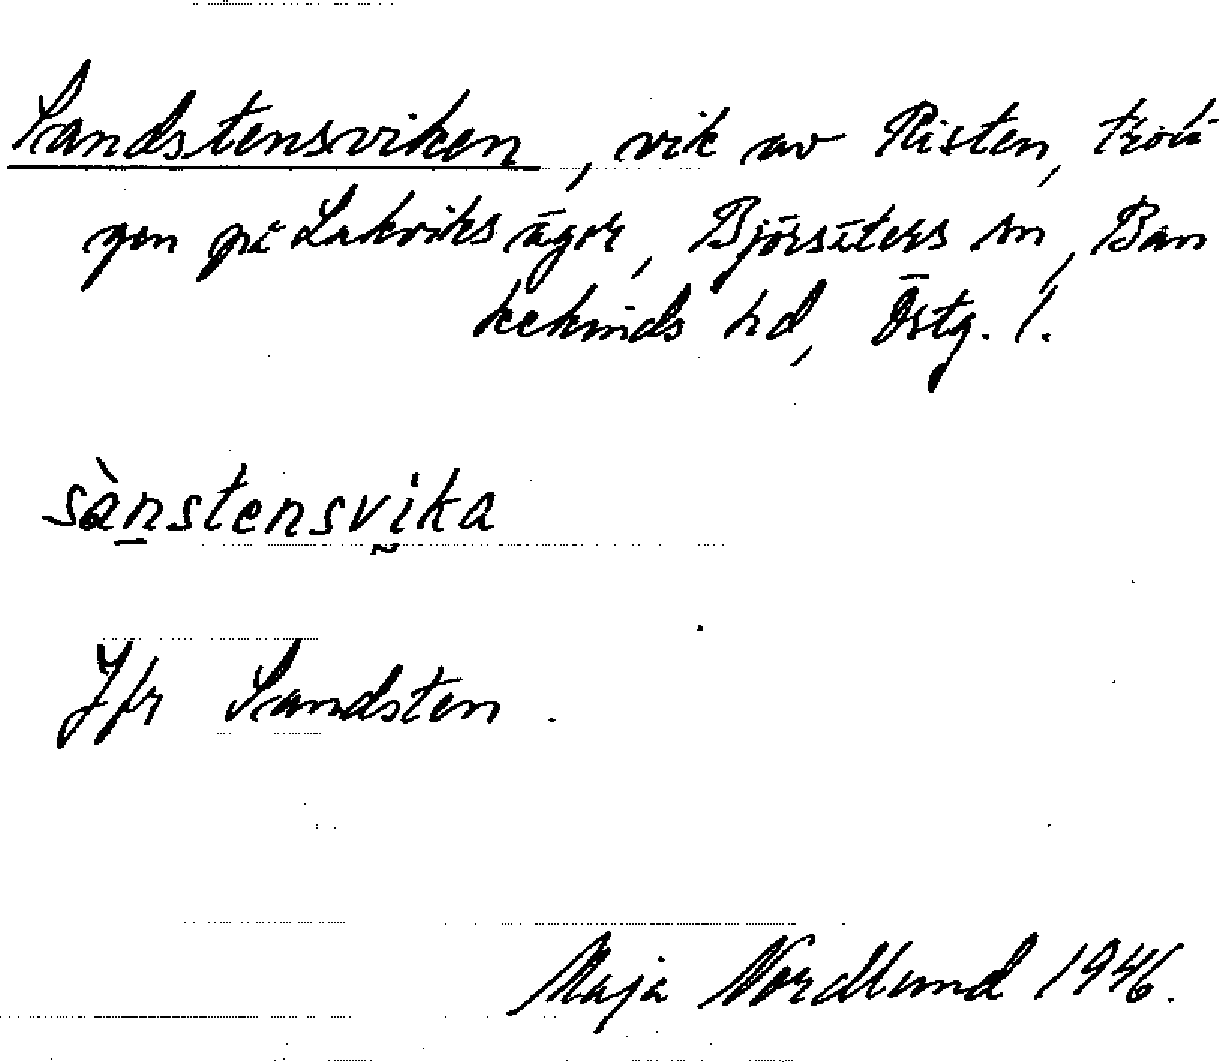 Sandstensviken, vik av Risten, troli
gen på Lakviks ägor, Björsäters sn, Ban
kekinds hd, Östg. l.
sànstensvika
Jfr Sandsten.
Maja Nordlund 1946.